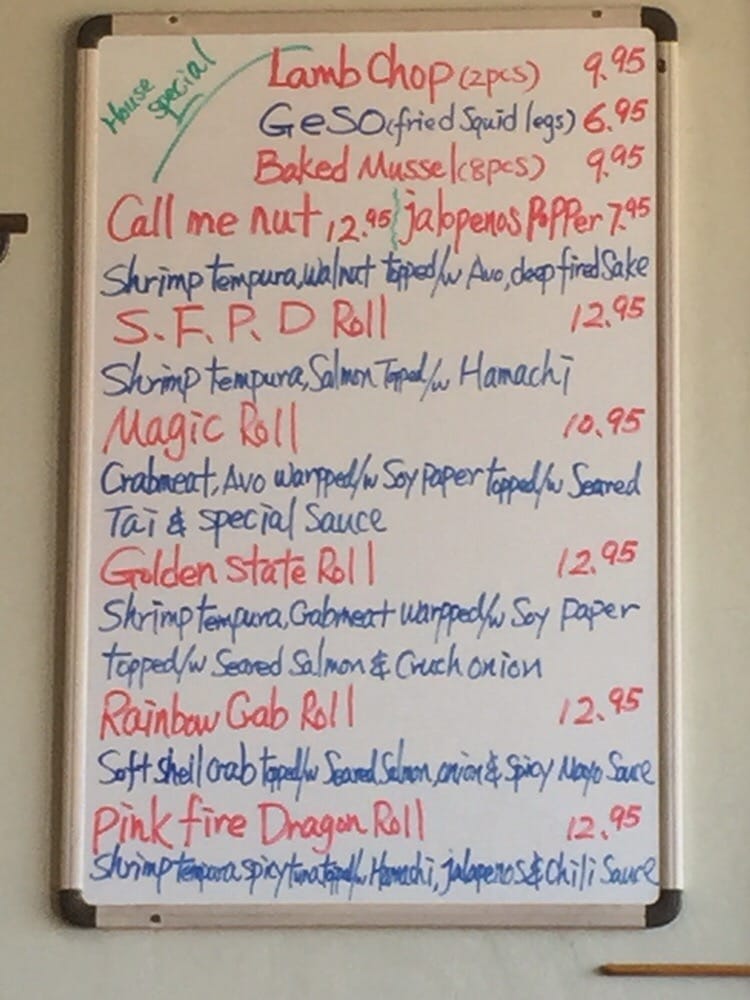 House special
Lamb Chop (2pcs) 9.95
GeSo (fried Squid legs) 6.95
Baked Mussel (8pcs) 9.95
Call me nut 12.95 jalopenos PoPPer 7.95
Shrimp tempura, walnut topped/w Avo, deep fired Sake
S.F.P.D Roll 12.95
Shrimp tempura, Salmon Topped/w Hamachi
Magic Roll 10.95
Crabmeat, Avo warpped/w Soy paper topped/w Seared
Tai & special Sauce
Golden state Roll 12.95
Shrimp tempura, Crabmeat warpped/w Soy paper
topped/w Seared Salmon & Cruch onion
Rainbow Cab Roll 12.95
Soft shell crab topped/w Seared Salmon, onion & Spicy Mayo Sauce
Pink fire Dragon Roll 12.95
Shrimp tempura spicy tuna topped/w Hamachi, jalapenos & Chili Sauce